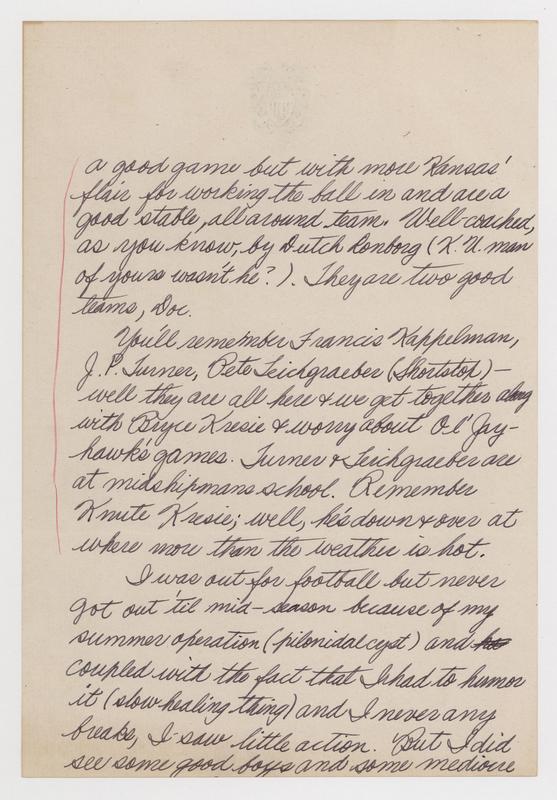 a good game but with more Kansas'
flair for working the ball in and are a
good stable, all around team. Well-coached,
as you know, by Dutch Lonborg (K.U. man
of yours wasn't he?). They are two good
teams, Doc.
You'll remember Francis Kappelman,
J.P. Turner, Pete Teichgraeber (Shortstop) –
well they are all here & we get together along
with Bryce Kresie & worry about Ol' Jay-
hawk's games. Turner & Teichgraeber are
at midshipmans school. Remember
Knute Kresie; well, he's down & over at
where more than the weather is hot.
I was out for football but never
got out 'til mid-season because of my
summer operation (pilonidal cyst) and
coupled with the fact that I had to humor
it (slow healing thing) and I never any
breaks, I saw little action. But I did
see some good boys and some mediocre